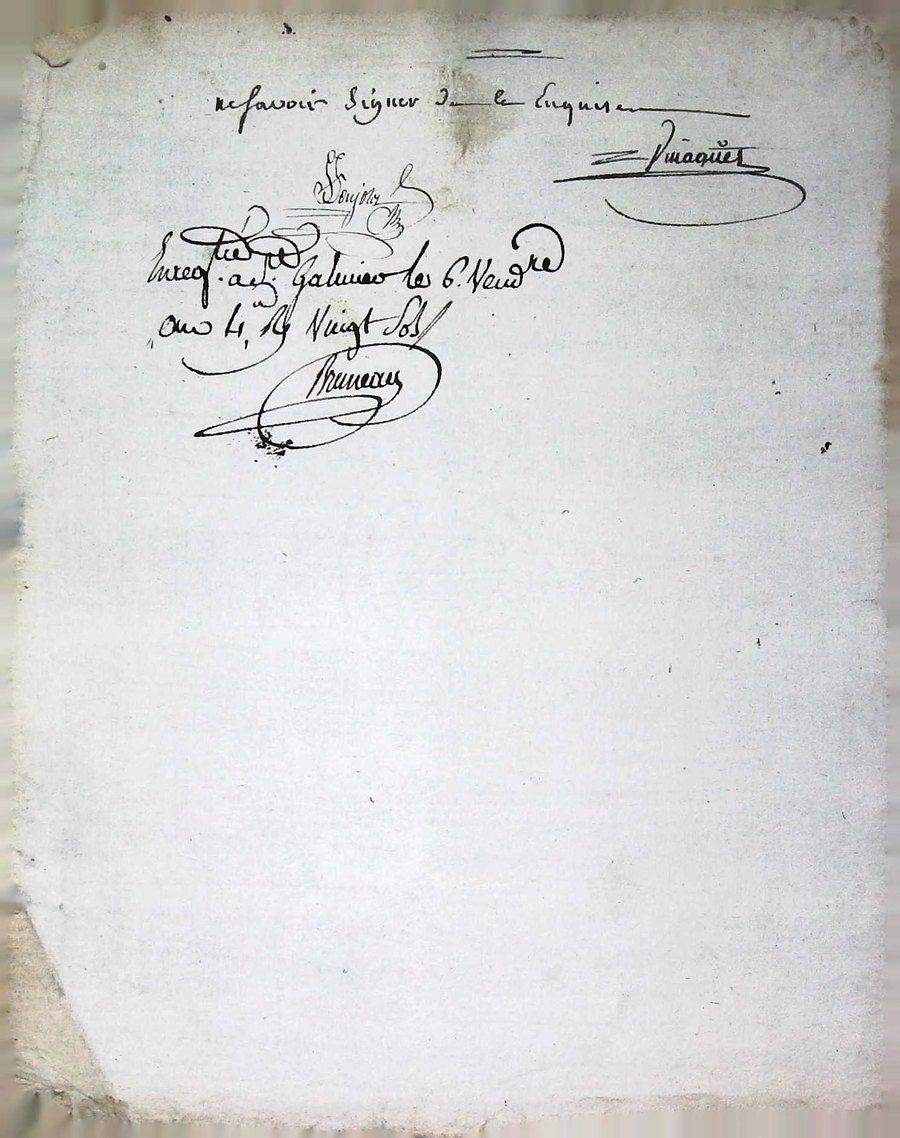 ne savoir signer De ce Enquis
Vinaquet
Bonjour
Enreg.tré a St. Galmier le 6. Vend.re
an 4. Re Vingt Sols
Bruneau